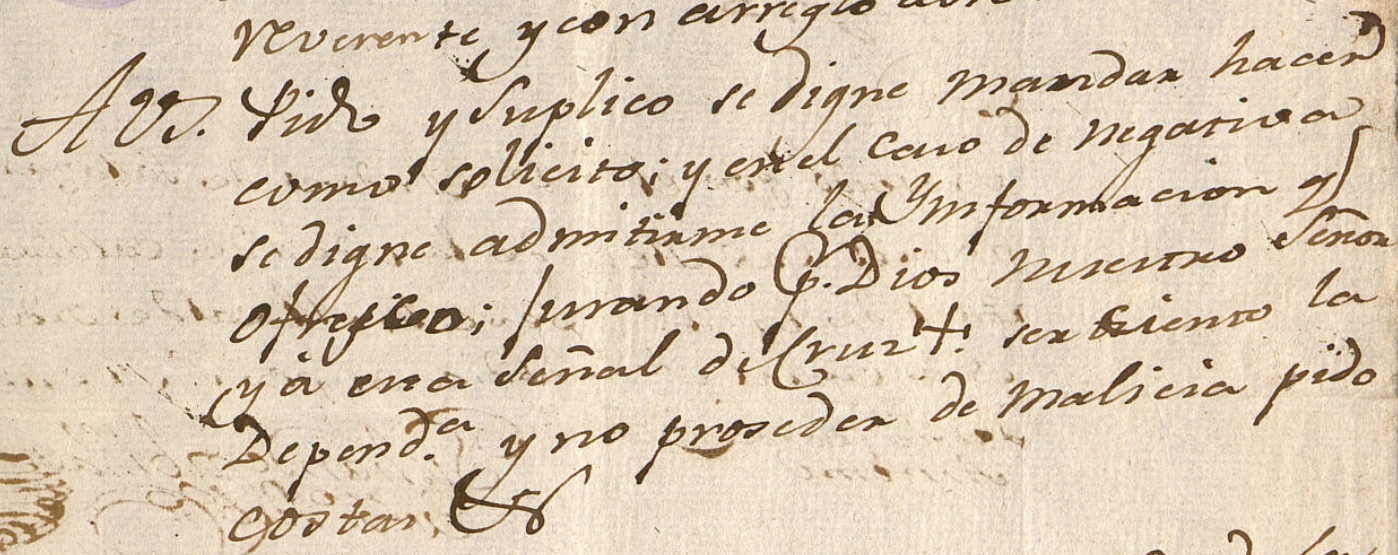 reverente, y con arreglo
A VS. Pido y suplico se digne mandar hacer
como solicito; y en el caso de negativa
se digne admitirme la Ynformacion q
ofresco; jurando p. Dios nuestro Señor
y á esta señal de Cruz +. ser sierto la
Depend.a y no proseder de malicia pido
costas &